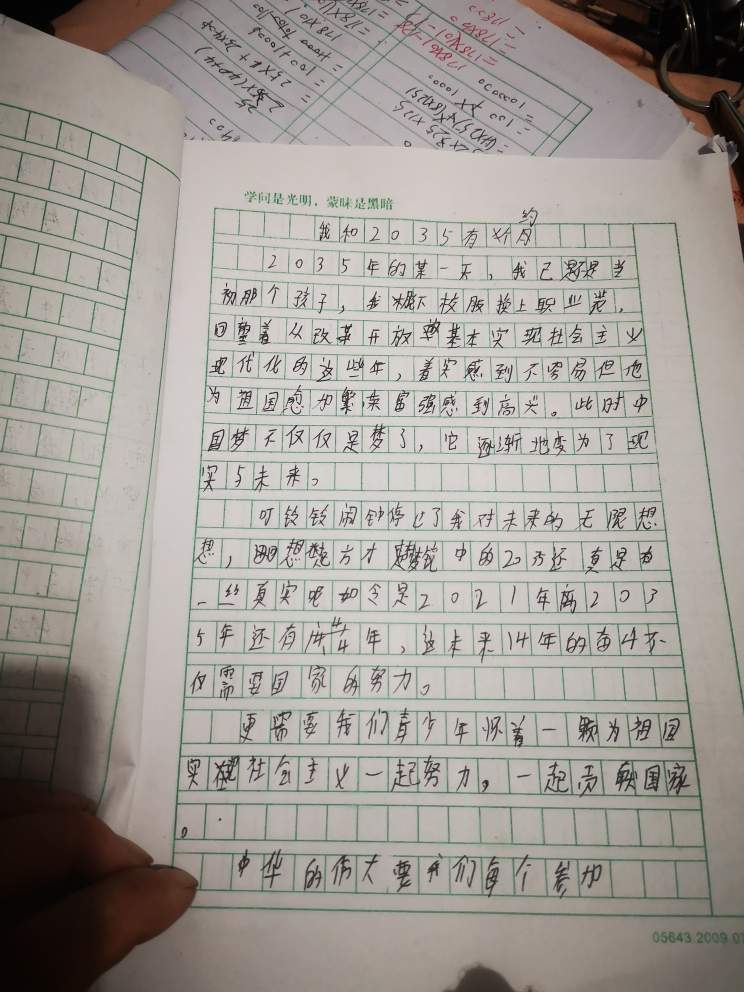 1000
= 25×4+25×4×4
= 100+1000
178×0
178×101-178
= 178×101-178
= 178×0
= 1780
100000
= 100 ×1000
学问是光明，蒙昧是黑暗
我和2035有个约
2035年的某一天，我已不是当
初那个孩子，我脱下校服换上职业装，
回望着从改革开放到基本实现社会主义
现代化的这些年，着实感到不容易但也
为祖国愈加繁荣富强感到高兴。此时中
国梦不仅仅是梦了，它逐渐地变为了现
实与未来。
叮铃铃闹钟停止了我对未来的无限想
想，回想方才梦境中的2035还真是有
一丝真实呢如今是2021年离203
5年还有14年，这未来14年的每年不
仅需要国家的努力。
更需要我们青少年怀着一颗为祖国
实现社会主义一起努力，一起贡献国家
。
中华的伟大要我们每个参加
05643.2009.07